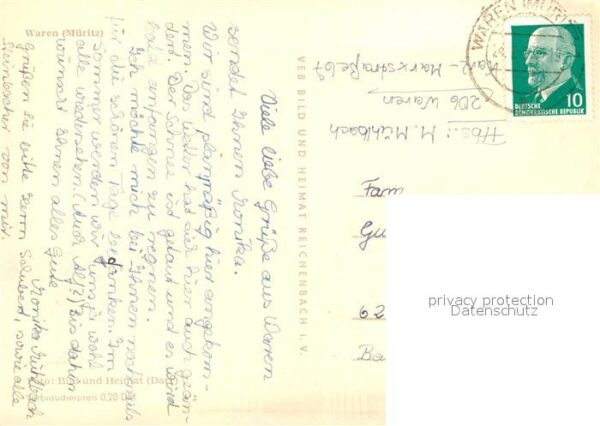 Waren (Müritz)
Viele liebe Grüße aus Waren
sendet Ihnen Monika.
Wir sind planmäßig hier angekom-
men. Das Wetter hat sich hier auch geän-
dert. Der Schnee ist getaut und es wird
bald anfangen zu regnen.
Ich möchte mich bei Ihnen nochmals
für die schönen Tage bedanken. Im
Sommer werden wir uns ja wohl
alle wiedersehen. (Auch Alf?) Bis dahin
wünscht Ihnen alles Gute
Monika Mühlbach
Grüßen Sie bitte Herrn Schubert, sowie alle
von mir.
Foto: Bild und Heimat
Verbraucherpreis 0,20
VEB BILD UND HEIMAT REICHENBACH I. V.
Abs.: M. Mühlbach
206 Waren
Karl-Marxstraße 67
WAREN (MÜRITZ)
DEUTSCHE
DEMOKRATISCHE REPUBLIK
10
Fam
Gu
62
Ba
privacy protection
Datenschutz